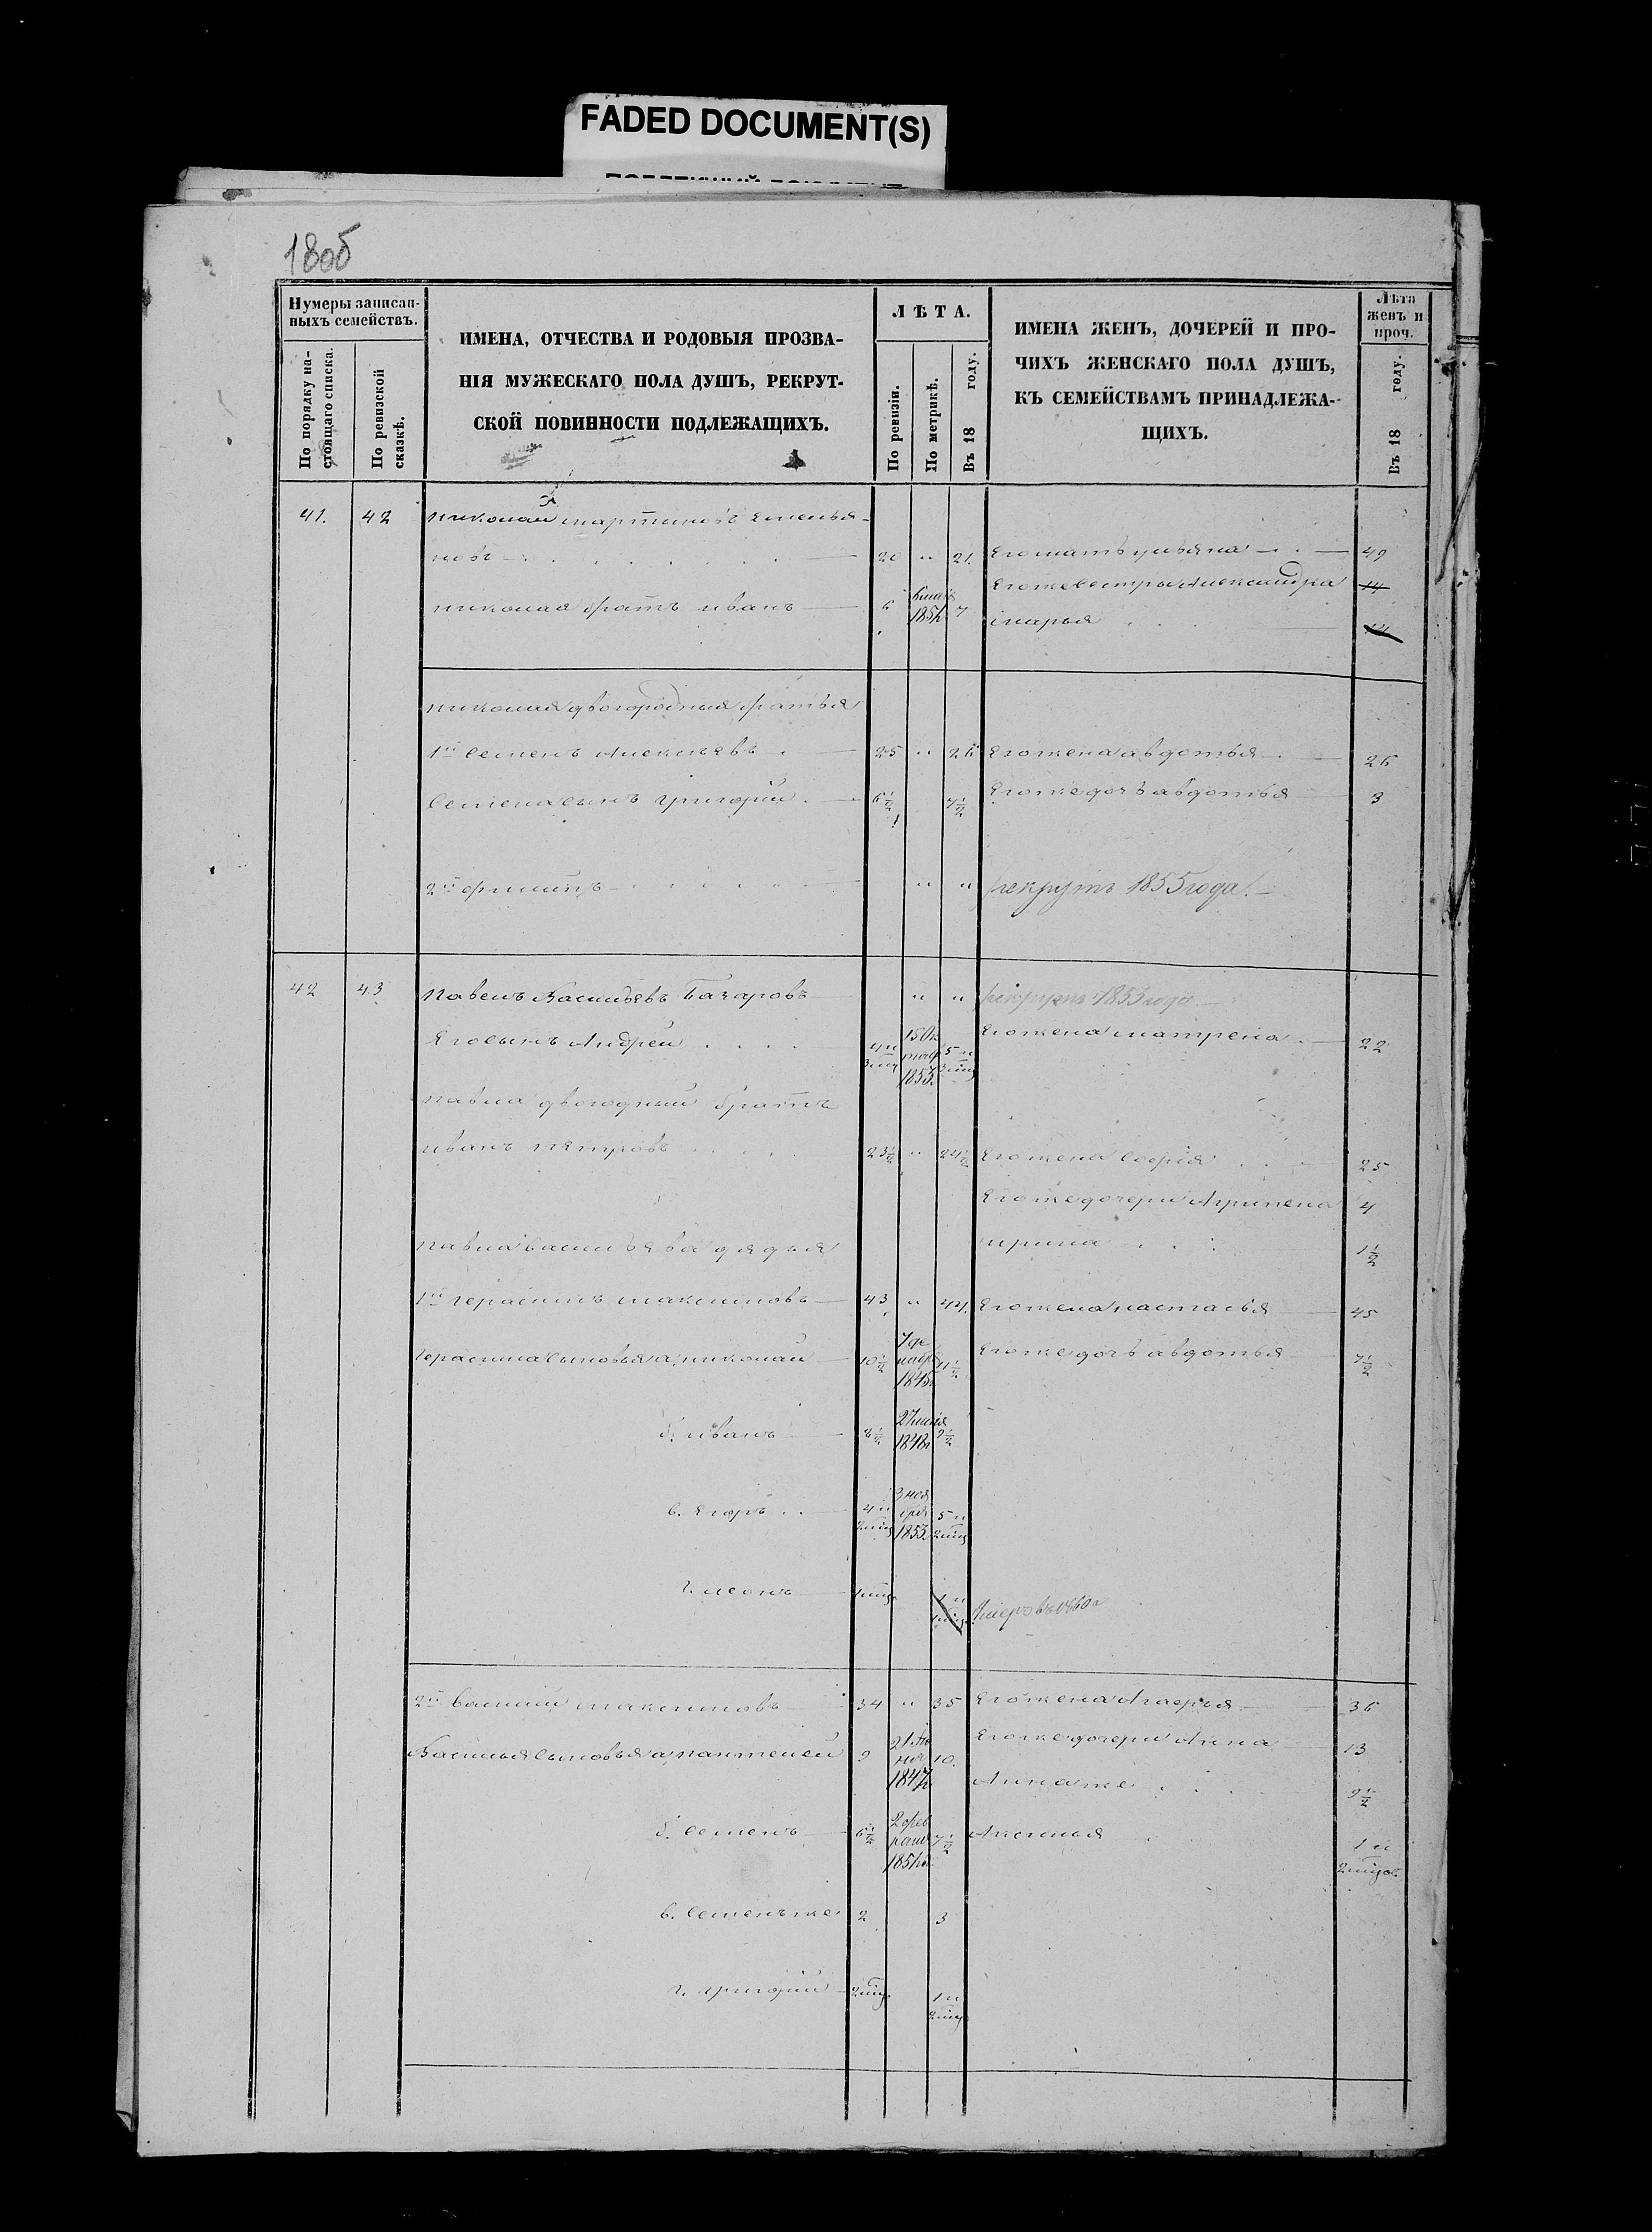 FADED DOCUMENT(S)
180б
Нумеры записан-
ныхъ семействъ.
По порядку на-
стоящаго списка.
По ревизской
сказкѣ.
ИМЕНА, ОТЧЕСТВА И РОДОВЫЯ ПРОЗВА-
НІЯ МУЖЕСКАГО ПОЛА ДУШЪ, РЕКРУТ-
СКОЙ ПОВИННОСТИ ПОДЛЕЖАЩИХЪ.
ЛѢТА.
По ревизіи.
По метрикѣ.
Въ 18 году.
ИМЕНА ЖЕНЪ, ДОЧЕРЕЙ И ПРО-
ЧИХЪ ЖЕНСКАГО ПОЛА ДУШЪ,
КЪ СЕМЕЙСТВАМЪ ПРИНАДЛЕЖА-
ЩИХЪ.
Лѣта
женъ и
проч.
Въ 18 году.
41. 42 Николай Мартиновъ Емелья-
новъ 20 " 21. Его мать ульяна 49
Егоже сестры Александра 14
Николая братъ иванъ 6 1851г 7 імарья
Николая двогородныя братья
1й Семенъ Алексѣевъ 25 " 26 Его жена авдотья 26
Семена сынъ григорій 6½ 7½ Егоже дочь авдотья 3
2й филипъ " " рекрутъ 1855 года
42 43 Павелъ Васильевъ Бачаровъ " " рекрутъ 1853 года
Его сынъ Андрей 4 и 3 мц 15 Ок тяб 1853. 5 и 3 мц Его жена матрена 22
павла двогодный братъ
иванъ петровъ 23½ " 24½ Его жена софія 25
Егоже дочери Агрипена 4
павла васильева дядья ирина 1½
1й герасимъ максимовъ 43 " 44. Его жена настасья 45
герасима сыновья а, николай 10½ 7 де кабр 11½ Егоже дочь авдотья 7½
б. иванъ 8½ 1848г 9½
в. Егоръ 4 и 2 мц 3 ноя бря 1853. 5 и 2 мц
г. леонъ 1 мц 1 и 1 мц Умеръ въ 1860 г
2й василій максимовъ 34 " 35 Его жена Агафья 36
Василья сыновья а, пантелей 9 1847г 10. Егоже дочери Анна 13
Аннаже 9½
б. Семенъ 6½ 2 фев раля 1851го 7½ Аксинья 1 и 2 мцов
в. Семенъ же 2 3
г. григорій 2 мц 1 и 2 мц